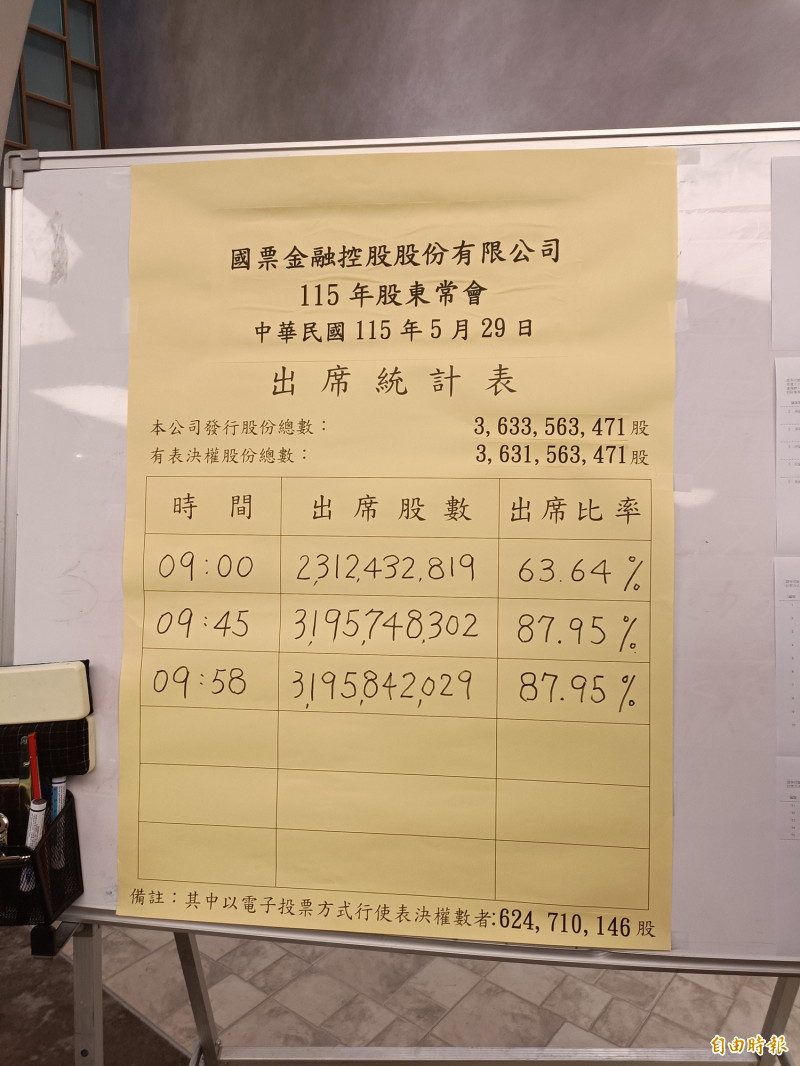 國票金融控股股份有限公司
115年股東常會
中華民國115年5月29日
出席統計表
本公司發行股份總數： 3,633,563,471股
有表決權股份總數： 3,631,563,471股
時間 出席股數 出席比率
09:00 2,312,432,819 63.64%
09:45 3,195,748,302 87.95%
09:58 3,195,842,029 87.95%
備註：其中以電子投票方式行使表決權數者:624,710,146股
自由時報